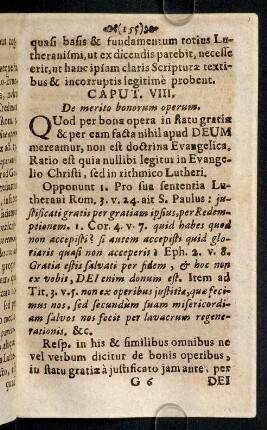 (155)
quasi basis & fundamentum totius Lu-
theranismi, ut ex dicendis patebit, necesse
erit, ut hanc ipsam claris Scripturæ texti-
bus & incorruptis legitimè probent.
CAPUT. VIII.
De merito bonorum operum.
QUod per bona opera in statu gratiæ
& per eam facta nihil apud DEUM
mereamur, non est doctrina Evangelica.
Ratio est quia nullibi legitur in Evange-
lio Christi, sed in rithmico Lutheri.
Opponunt 1. Pro sua sententia Lu-
therani Rom, 3. v. 24. ait S. Paulus: ju-
stificati gratis per gratiam ipsius, per Redem-
ptionem. 1. Cor. 4. v. 7. quid habes quod
non accepisti? si autem accepisti quid glo-
riaris quasi non acceperis? Eph. 2. v. 8.
Gratia estis salvati per fidem, & hoc non
ex vobis, DEI enim donum est. Item ad
Tit. 3. v. 5. non ex operibus justitiæ, quæ feci-
mus nos, sed secundum suam misericordi-
am salvos nos fecit per lavacrum regene-
rationis. &c.
Resp. in his & similibus omnibus ne
vel verbum dicitur de bonis operibus,
in statu gratiæ à justificato jam ante, per
G 6 DEI